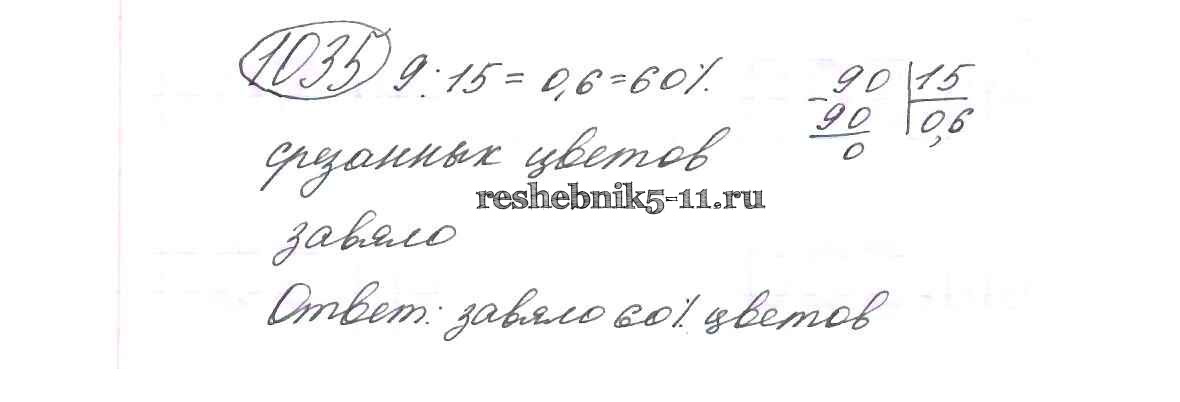 1035 9 : 15 = 0,6 = 60%.
-90 | 15
90 | 0,6
0
срезанных цветов
reshebnik5-11.ru
завяло
Ответ: завяло 60% цветов